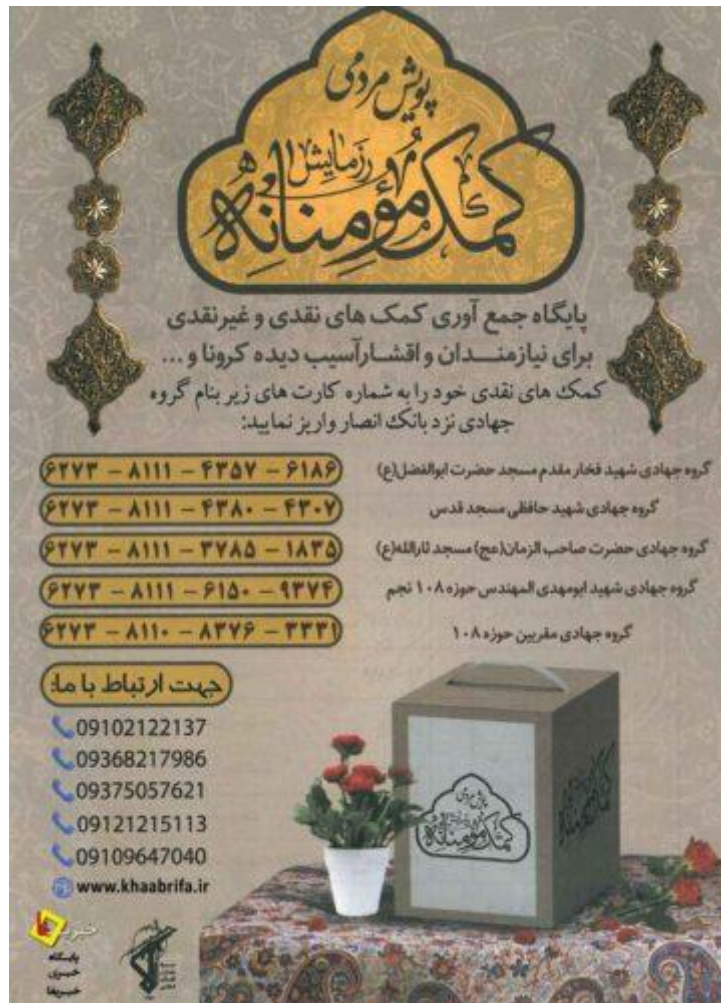 پویش مردمی
رزمایش
کمک مؤمنانه
پایگاه جمع آوری کمک های نقدی و غیرنقدی
برای نیازمندان و اقشار آسیب دیده کرونا و ...
کمک های نقدی خود را به شماره کارت های زیر بنام گروه
جهادی نزد بانک انصار واریز نمایید:
گروه جهادی شهید فخار مقدم مسجد حضرت ابوالفضل(ع) ۶۲۷۳ - ۸۱۱۱ - ۴۳۵۷ - ۶۱۸۶
گروه جهادی شهید حافظی مسجد قدس ۶۲۷۳ - ۸۱۱۱ - ۴۳۸۰ - ۴۳۰۷
گروه جهادی حضرت صاحب الزمان(عج) مسجد ثارالله(ع) ۶۲۷۳ - ۸۱۱۱ - ۳۷۸۵ - ۱۸۳۵
گروه جهادی شهید ابومهدی المهندس حوزه ۱۰۸ نجم ۶۲۷۳ - ۸۱۱۱ - ۶۱۵۰ - ۹۳۷۴
گروه جهادی مقربین حوزه ۱۰۸ ۶۲۷۳ - ۸۱۱۰ - ۸۳۷۶ - ۳۳۳۱
جهت ارتباط با ما:
09102122137
09368217986
09375057621
09121215113
09109647040
www.khaabrifa.ir
پویش مردمی
کمک مؤمنانه
کمک مؤمنانه
پایگاه
خبری
خبریفا